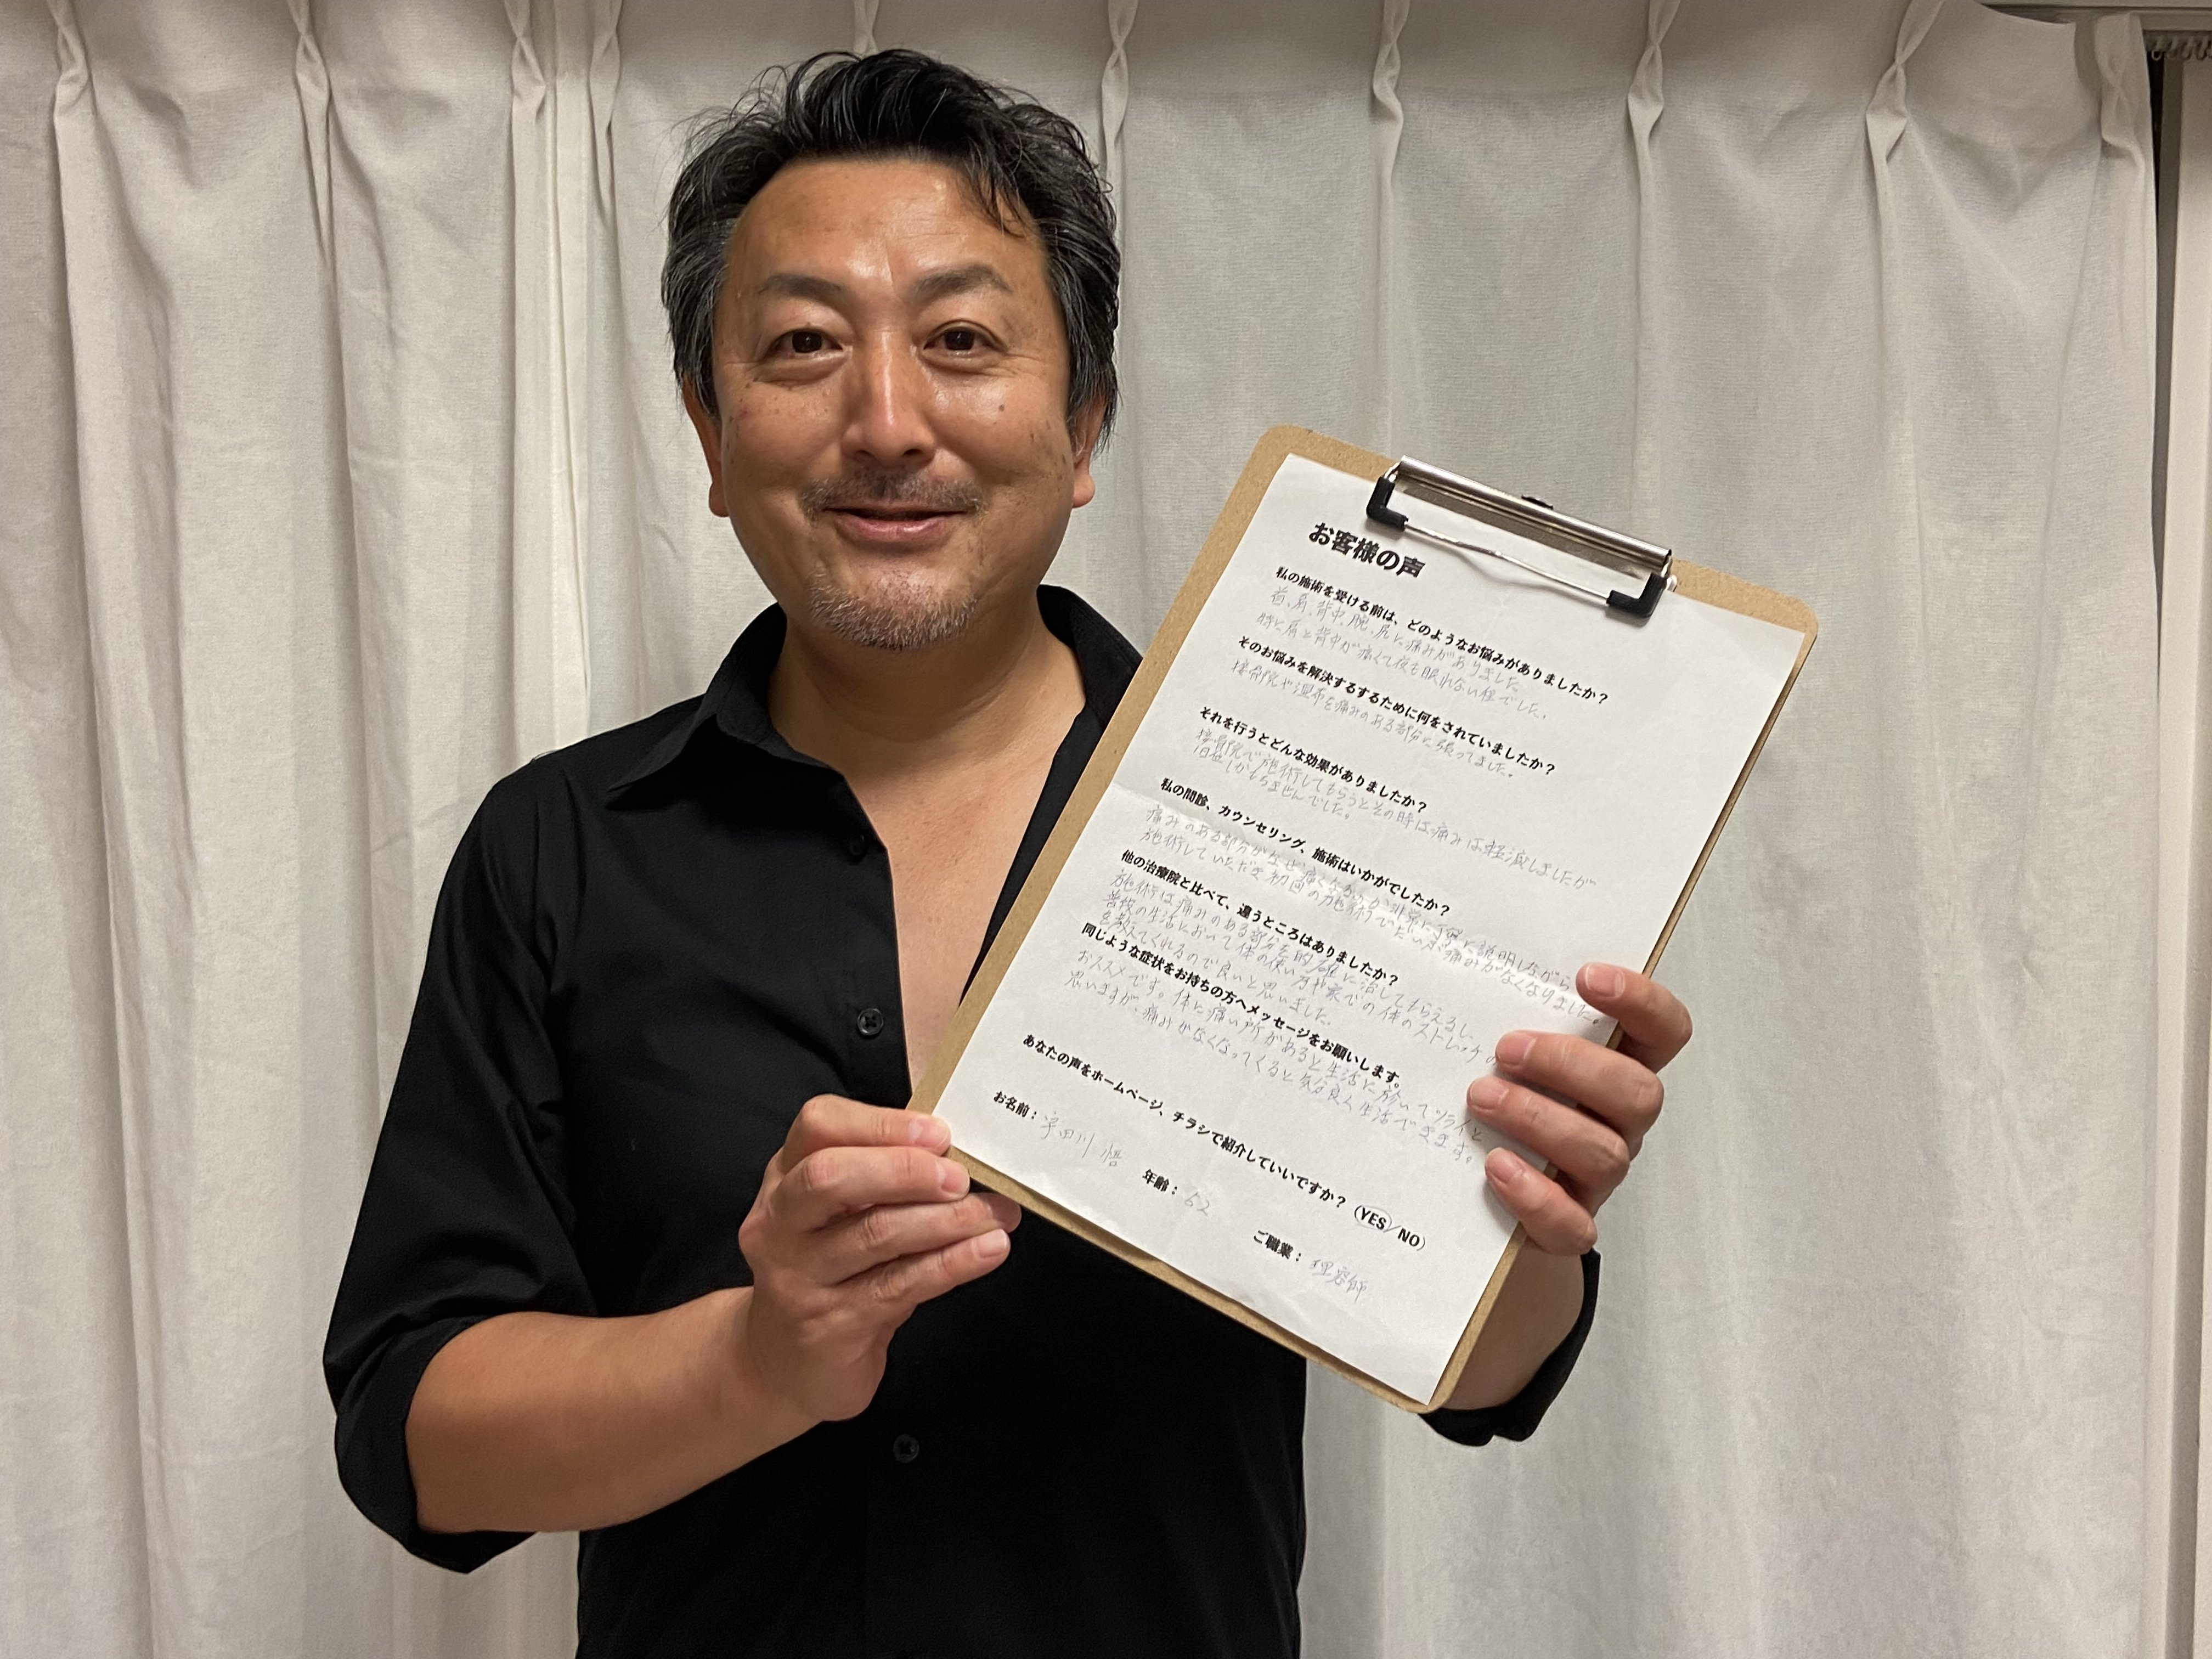 お客様の声
私の施術を受ける前は、どのようなお悩みがありましたか？
首、肩、背中、腕、尻に痛みがありました。
特に肩と背中が痛くて夜も眠れない程でした。
そのお悩みを解決するするために何をされていましたか？
接骨院や湿布を痛みのある部分に張ってました。
それを行うとどんな効果がありましたか？
接骨院で施術してもらうとその時は痛みは軽減しましたが
1日位しかもちませんでした。
私の問診、カウンセリング、施術はいかがでしたか？
痛みのある部分がなぜ痛くなるのか非常に丁寧に説明しながら
施術していただき初回の施術でだいぶ痛みがなくなりました。
他の治療院と比べて、違うところはありましたか？
施術は痛みのある部分を的確に治してもらえるし、
普段の生活において体の使い方や家での体のストレッチの
を教えてくれるので良いと思いました。
同じような症状をお持ちの方へメッセージをお願いします。
おススメです。体に痛い所があると生活に於いてツライと
思いますが、痛みがなくなってくると気分良く生活できます。
あなたの声をホームページ、チラシで紹介していいですか？（YES／NO）
お名前：宇田川 悟
年齢：52
ご職業：理容師